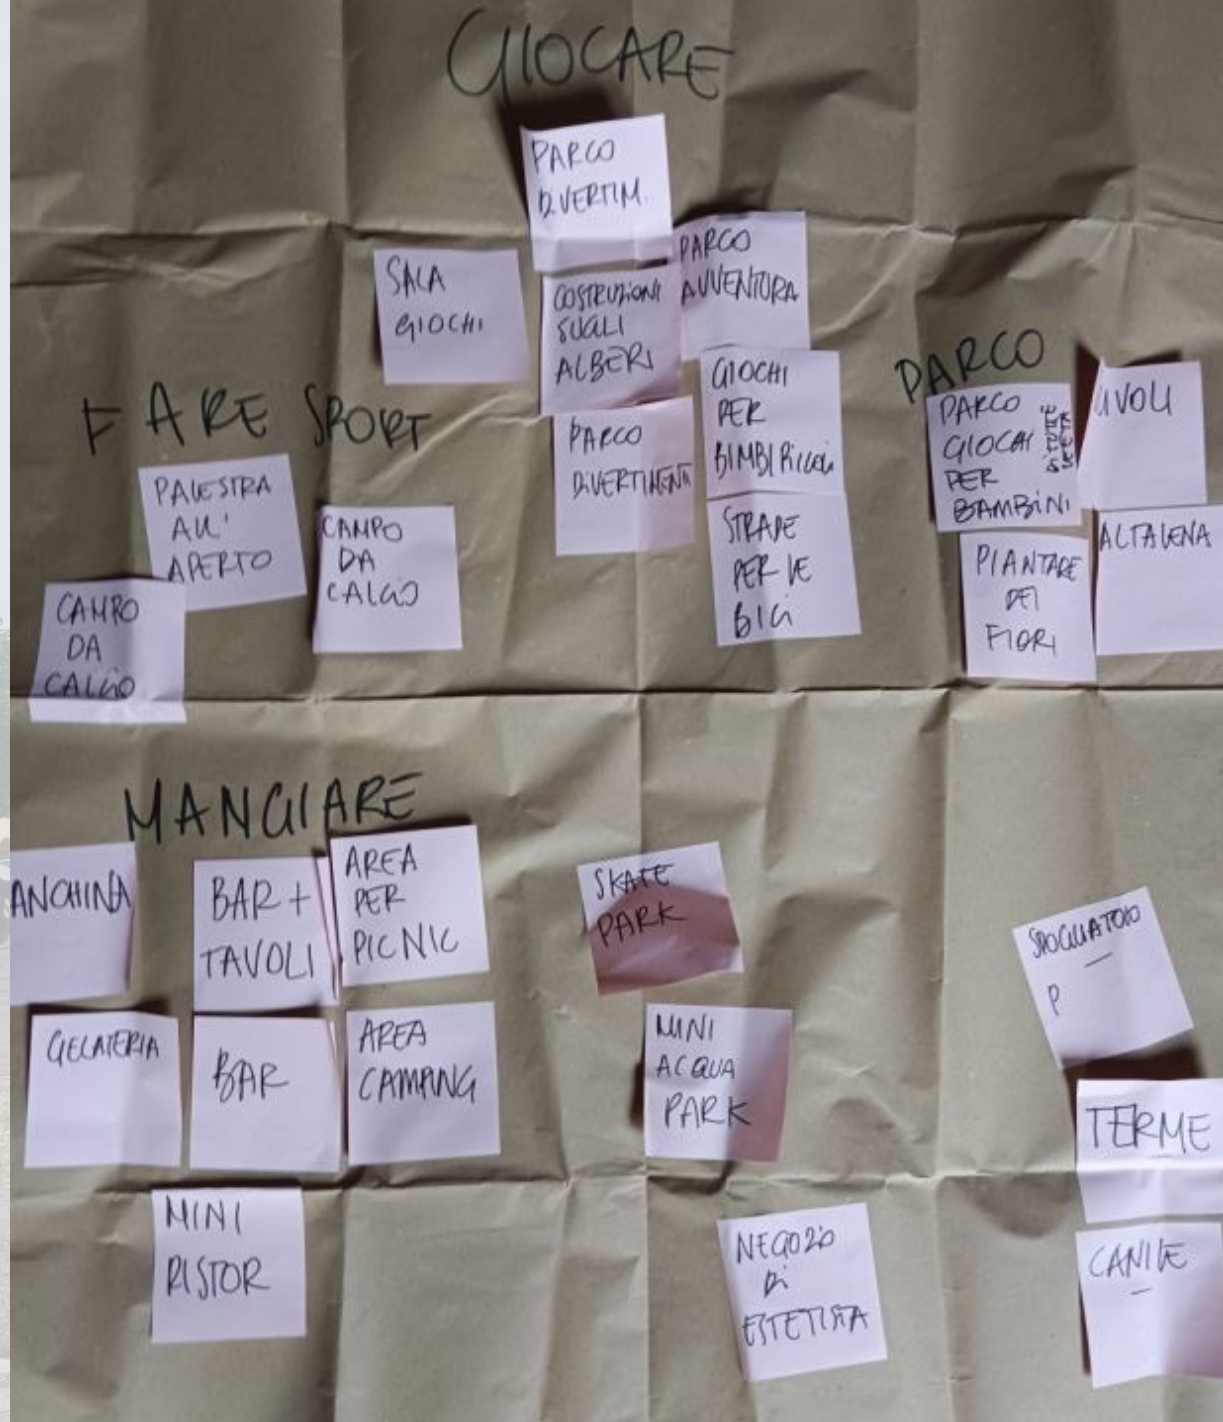 GIOCARE
PARCO
DIVERTIM.
SALA
GIOCHI
COSTRUZIONI
SUGLI
ALBERI
PARCO
AVVENTURA
PARCO
DIVERTIMENTI
GIOCHI
PER
BIMBI PICCOLI
STRADE
PER LE
BICI
FARE SPORT
PALESTRA
ALL'
APERTO
CAMPO
DA
CALCIO
CAMPO
DA
CALCIO
PARCO
PARCO
GIOCHI
PER
BAMBINI
PIANTARE
DEI
FIORI
ALTALENA
MANGIARE
ANCHINA
BAR +
TAVOLI
AREA
PER
PICNIC
GELATERIA
BAR
AREA
CAMPING
MINI
RISTOR
SKATE
PARK
MINI
ACQUA
PARK
NEGOZIO
DI
ESTETISTA
SPOGLIATOIO
P
TERME
CANILE